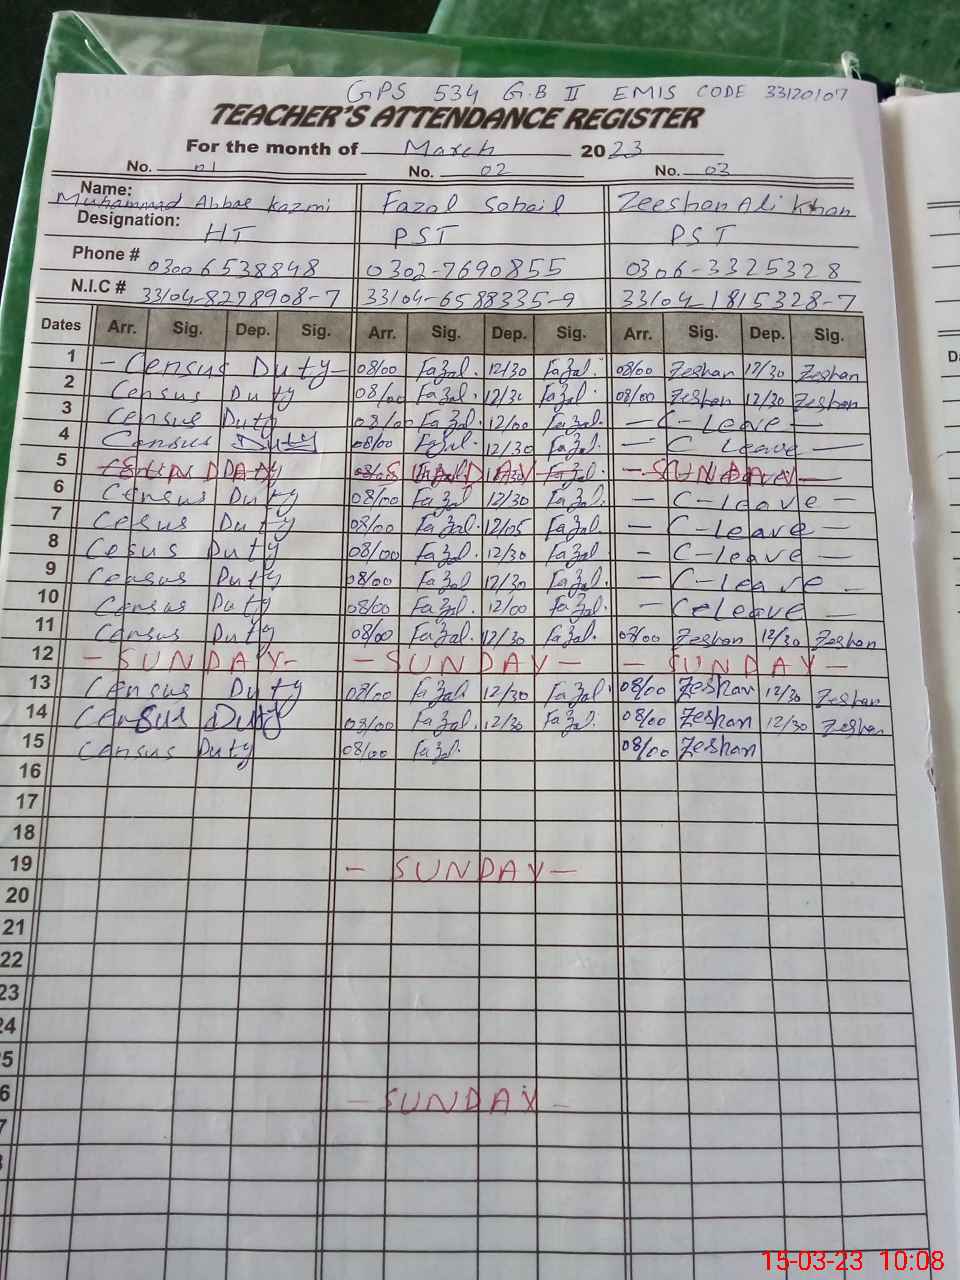 GPS 534 G.B II EMIS CODE 33120107
TEACHER'S ATTENDANCE REGISTER
For the month of March 2023
No. 01 No. 02 No. 03
Name: Muhammad Abbas Kazmi Fazal Sohail Zeeshan Ali Khan
Designation: HT PST PST
Phone # 0300 6538848 0302-7690855 0306-3325328
N.I.C # 33104-8278908-7 33104-6588335-9 33104-1815328-7
Dates Arr. Sig. Dep. Sig. Arr. Sig. Dep. Sig. Arr. Sig. Dep. Sig.
1 - Census Duty - 08/00 Fazal. 12/30 Fazal. 08/00 Zeshan 12/30 Zeshan
2 Census Duty 08/00 Fazal. 12/30 Fazal. 08/00 Zeshan 12/30 Zeshan
3 Census Duty 08/00 Fazal. 12/00 Fazal. - C-Leave -
4 Census Duty 08/00 Fazal. 12/30 Fazal. - C Leave -
5 SUNDAY - SUNDAY - - SUNDAY -
6 Census Duty 08/00 Fazal 12/30 Fazal. - C-leave -
7 Cesus Duty 08/00 Fazal. 12/05 Fazal. - C-leave -
8 Cesus Duty 08/00 Fazal. 12/30 Fazal - C-leave -
9 Census Duty 08/00 Fazal 12/30 Fazal. - C-leave -
10 Census Duty 08/00 Fazal. 12/00 Fazal. - C-Leave -
11 Census Duty 08/00 Fazal. 12/30 Fazal. 08/00 Zeshan 12/30 Zeshan
12 - SUNDAY - - SUNDAY - - SUNDAY -
13 Census Duty 08/00 Fazal 12/30 Fazal. 08/00 Zeshan 12/30 Zeshan
14 Census Duty 08/00 Fazal. 12/30 Fazal. 08/00 Zeshan 12/30 Zeshan
15 Census Duty 08/00 Fazal. 08/00 Zeshan
16
17
18
19 - SUNDAY -
20
21
22
23
24
25
26 - SUNDAY -
15-03-23 10:08